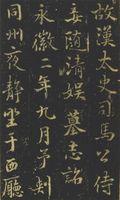 故漢太史司馬公侍
妾随清娛墓志銘
永徽二年九月予刺
同州夜靜坐于西廳